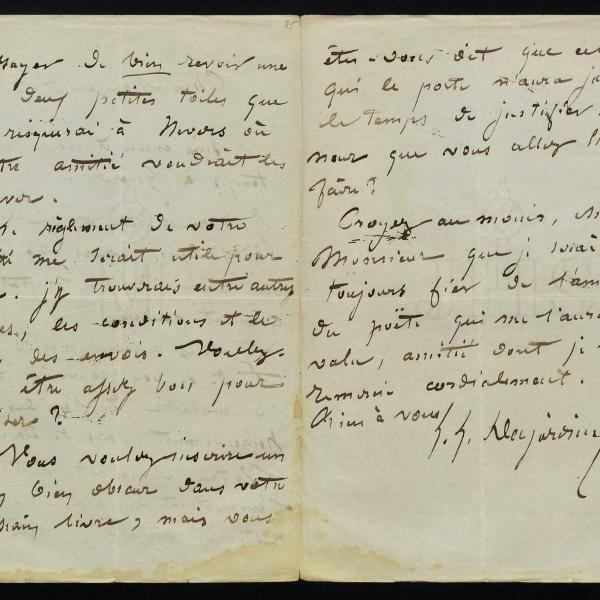 25
sayer de bien revoir une
deux petites toiles que
risquerai à Nevers où
tre amitié voudrait les
ver.
règlement de votre
té me serait utile pour
j'y trouverais entre autres
es, les conditions et le
des envois. Voulez-
être assez bon pour
ser ?
Vous voulez inscrire un
bien obscur dans votre
chain livre, mais vous
êtes-vous dit que ce
qui le porte n'aura ja
le temps de justifier
neur que vous allez l
faire ?
Croyez au moins, ch
Monsieur que je serai
toujours fier de l'am
du poëte qui me l'aura
valu, amitié dont je
remercie cordialement.
à vous
Desjardins